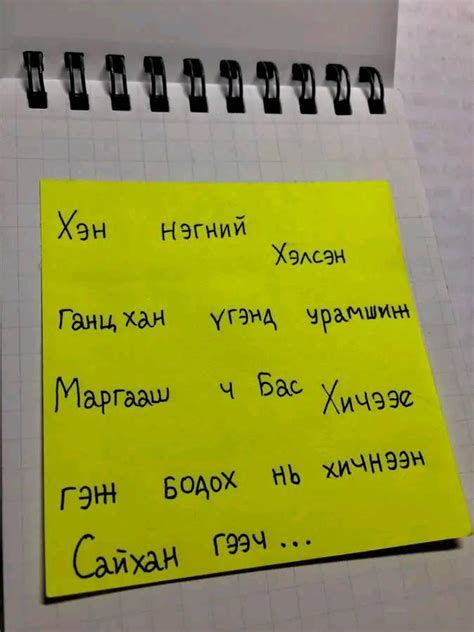 Хэн нэгний
Хэлсэн
ганцхан үгэнд урамшиж
Маргааш ч Бас Хичээе
гэж бодох нь хичнээн
Сайхан гээч...